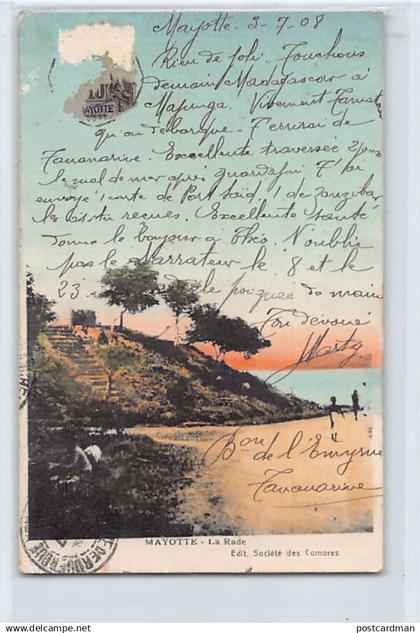 Mayotte 3-7-08
Rien de joli. Touchons
demain Madagascar à
Majunga. Vivement Tamat
qu'on débarque. T'écrirai de
Tananarive. Excellente traversée
le mal de mer après Guardafui T'ai
envoyé 1 carte de Port Saïd, 1 de Zanzibar
les as-tu reçues. Excellente santé
donne le bonjour à Théo. N'oublie
pas le Narrateur le 8 et le
23
poignée de main
Ton dévoué
MAYOTTE
Bon de l'Emyrne
Tananarive
MAYOTTE - La Rade
Edit. Société des Comores
© postcardman
postcardman.com